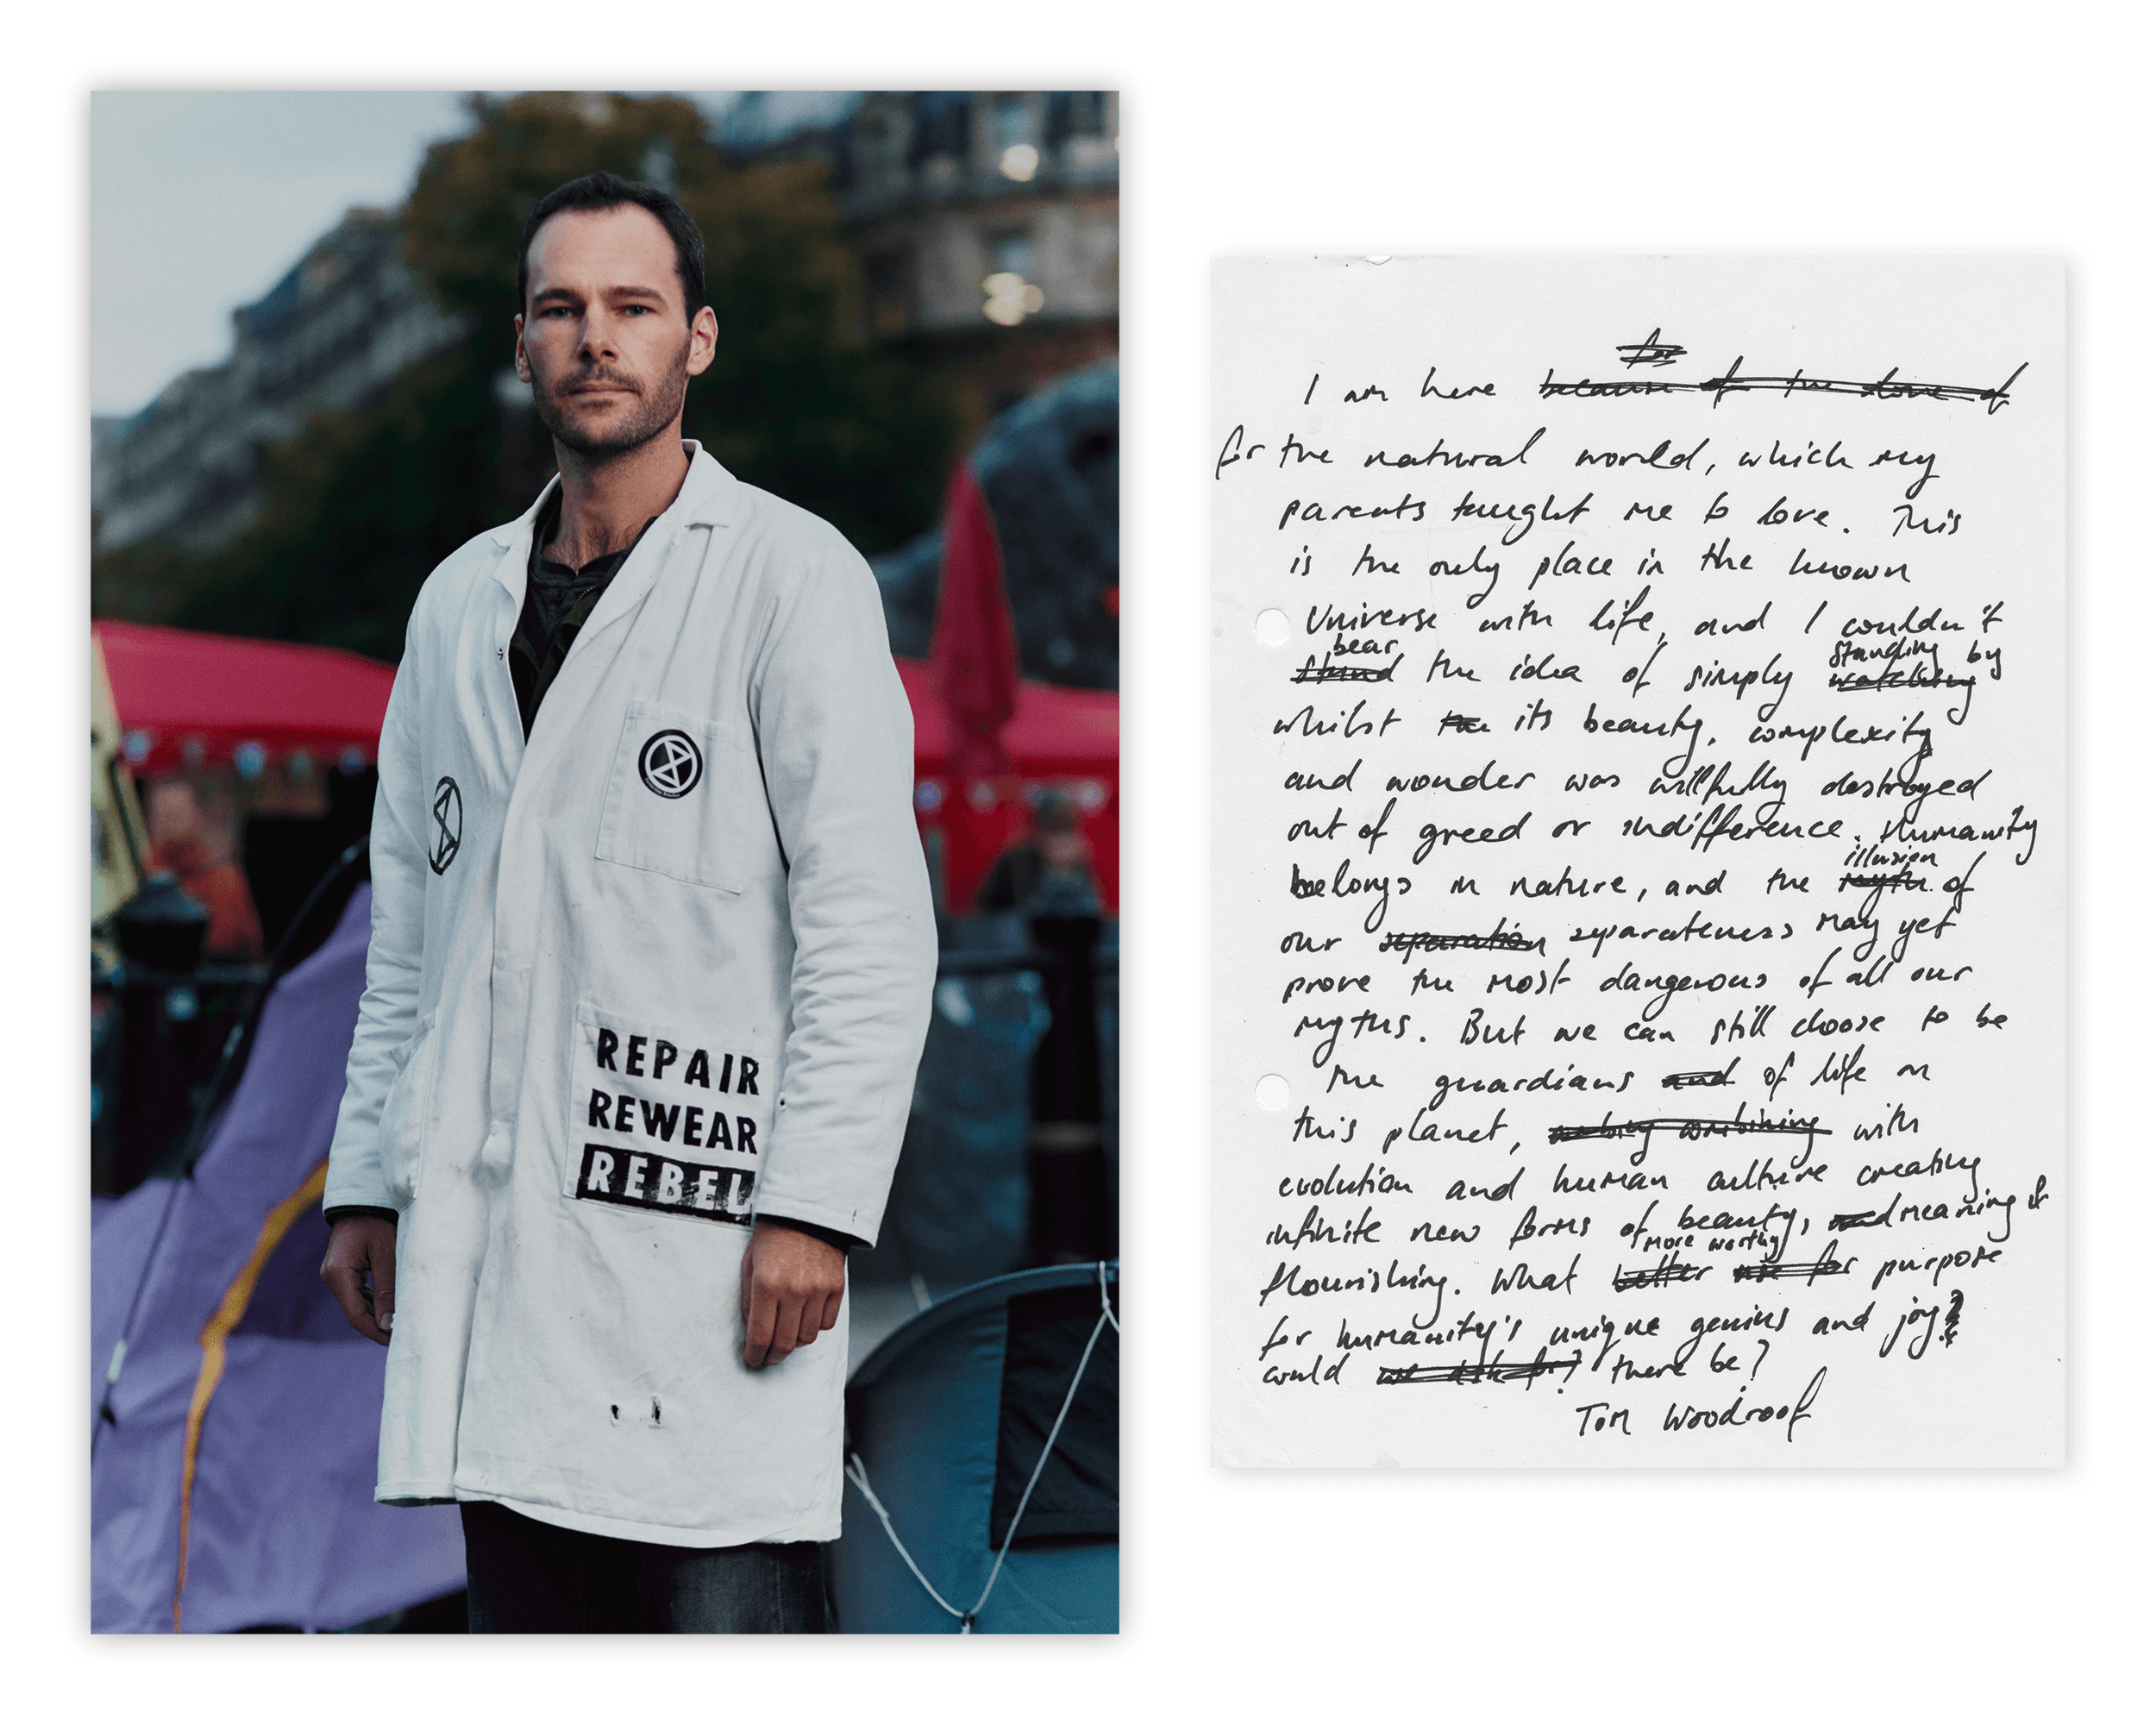 REPAIR
REWEAR
REBEL
for
I am here because of the love of
for the natural world, which my
parents taught me to love. This
is the only place in the known
Universe with life, and I couldn't
bear standing by
stand the idea of simply watching
whilst the its beauty, complexity
and wonder was willfully destroyed
out of greed or indifference. Humanity
illusion
belongs in nature, and the myth of
our separation separateness may yet
prove the most dangerous of all our
myths. But we can still choose to be
the guardians and of life on
this planet, combining with
evolution and human culture creating
infinite new forms of beauty, and meaning &
more worthy
flourishing. What better use for purpose
for humanity's unique genius and joy?
could we ask for? there be?
Tom Woodroof